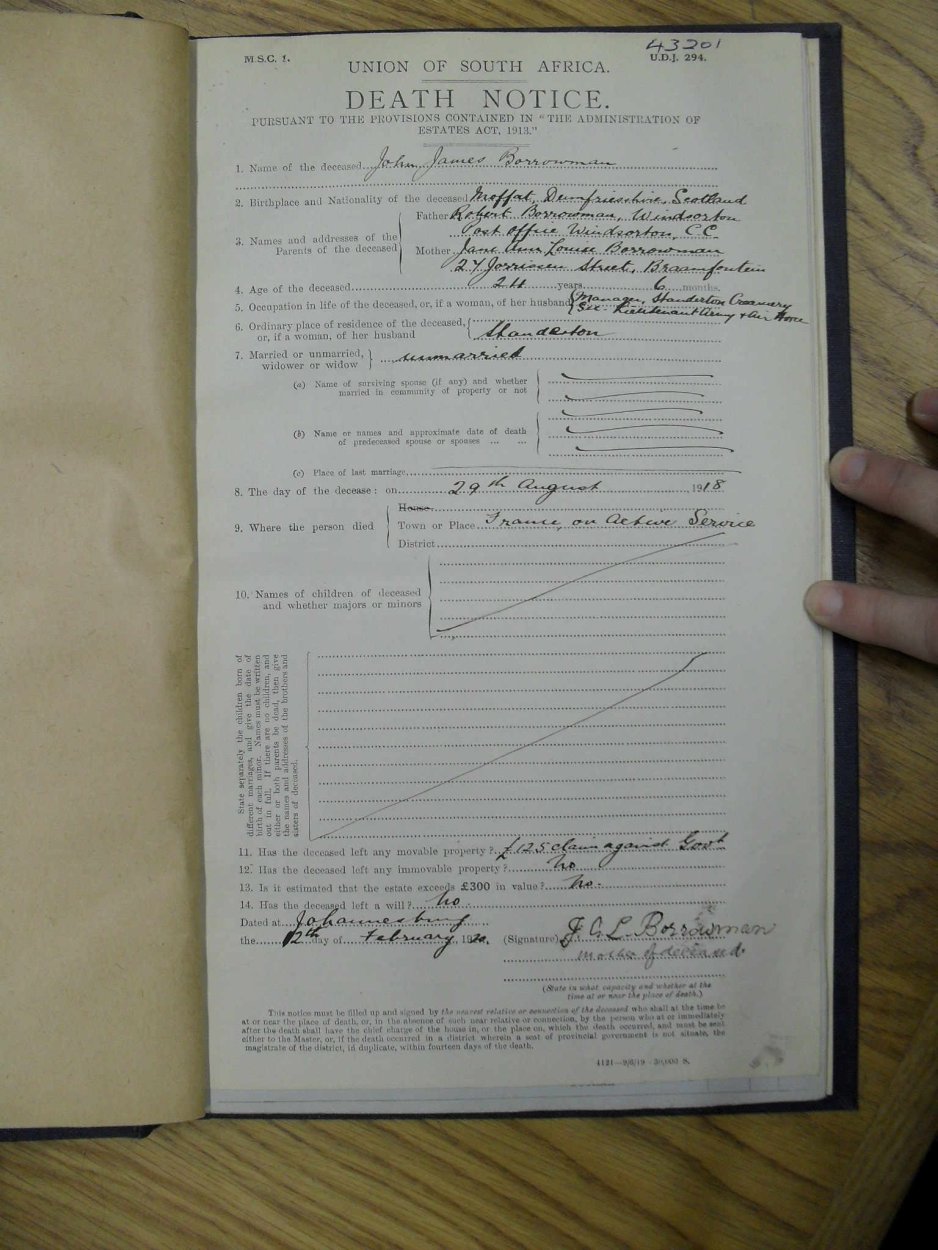 43201
M.S.C. 1.
U.D.J. 294.
UNION OF SOUTH AFRICA.
DEATH NOTICE.
PURSUANT TO THE PROVISIONS CONTAINED IN "THE ADMINISTRATION OF
ESTATES ACT, 1913."
1. Name of the deceased John James Borrowman
2. Birthplace and Nationality of the deceased Moffat, Dumfriesshire, Scotland
3. Names and addresses of the Parents of the deceased
Father Robert Borrowman, Windsorton
Post Office Windsorton, C.C
Mother Jane Ann Louise Borrowman
27 Jorrissen Street, Braamfontein
4. Age of the deceased 24 years 6 months.
5. Occupation in life of the deceased, or, if a woman, of her husband Manager, Standerton Creamery
Sec. Lieutenant Army & Air Force
6. Ordinary place of residence of the deceased,
or, if a woman, of her husband Standerton
7. Married or unmarried,
widower or widow unmarried
(a) Name of surviving spouse (if any) and whether
married in community of property or not
(b) Name or names and approximate date of death
of predeceased spouse or spouses ... ...
(c) Place of last marriage
8. The day of the decease: on 29th August 1918
House
9. Where the person died Town or Place France, on Active Service
District
10. Names of children of deceased
and whether majors or minors
State separately the children born of
different marriages, and give the date of
birth of each minor. Names must be written
out in full. If there are no children, and
either or both parents be dead, then give
the names and addresses of the brothers and
sisters of deceased.
11. Has the deceased left any movable property? £125 claim against Govt
12. Has the deceased left any immovable property? no
13. Is it estimated that the estate exceeds £300 in value? no.
14. Has the deceased left a will? no
Dated at Johannesburg
the 12th day of February, 1920. (Signature) J A L Borrowman
mother of deceased.
(State in what capacity and whether at the
time at or near the place of death.)
This notice must be filled up and signed by the nearest relative or connection of the deceased who shall at the time be
at or near the place of death; or, in the absence of such near relative or connection, by the person who at or immediately
after the death shall have the chief charge of the house in, or the place on, which the death occurred, and must be sent
either to the Master, or, if the death occurred in a district wherein a seat of provincial government is not situate, the
magistrate of the district, in duplicate, within fourteen days of the death.
4121—9/6/19—50,000 S.